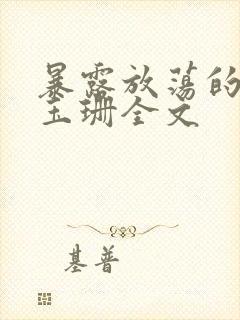 暴露放荡的
玉珊全文
基普